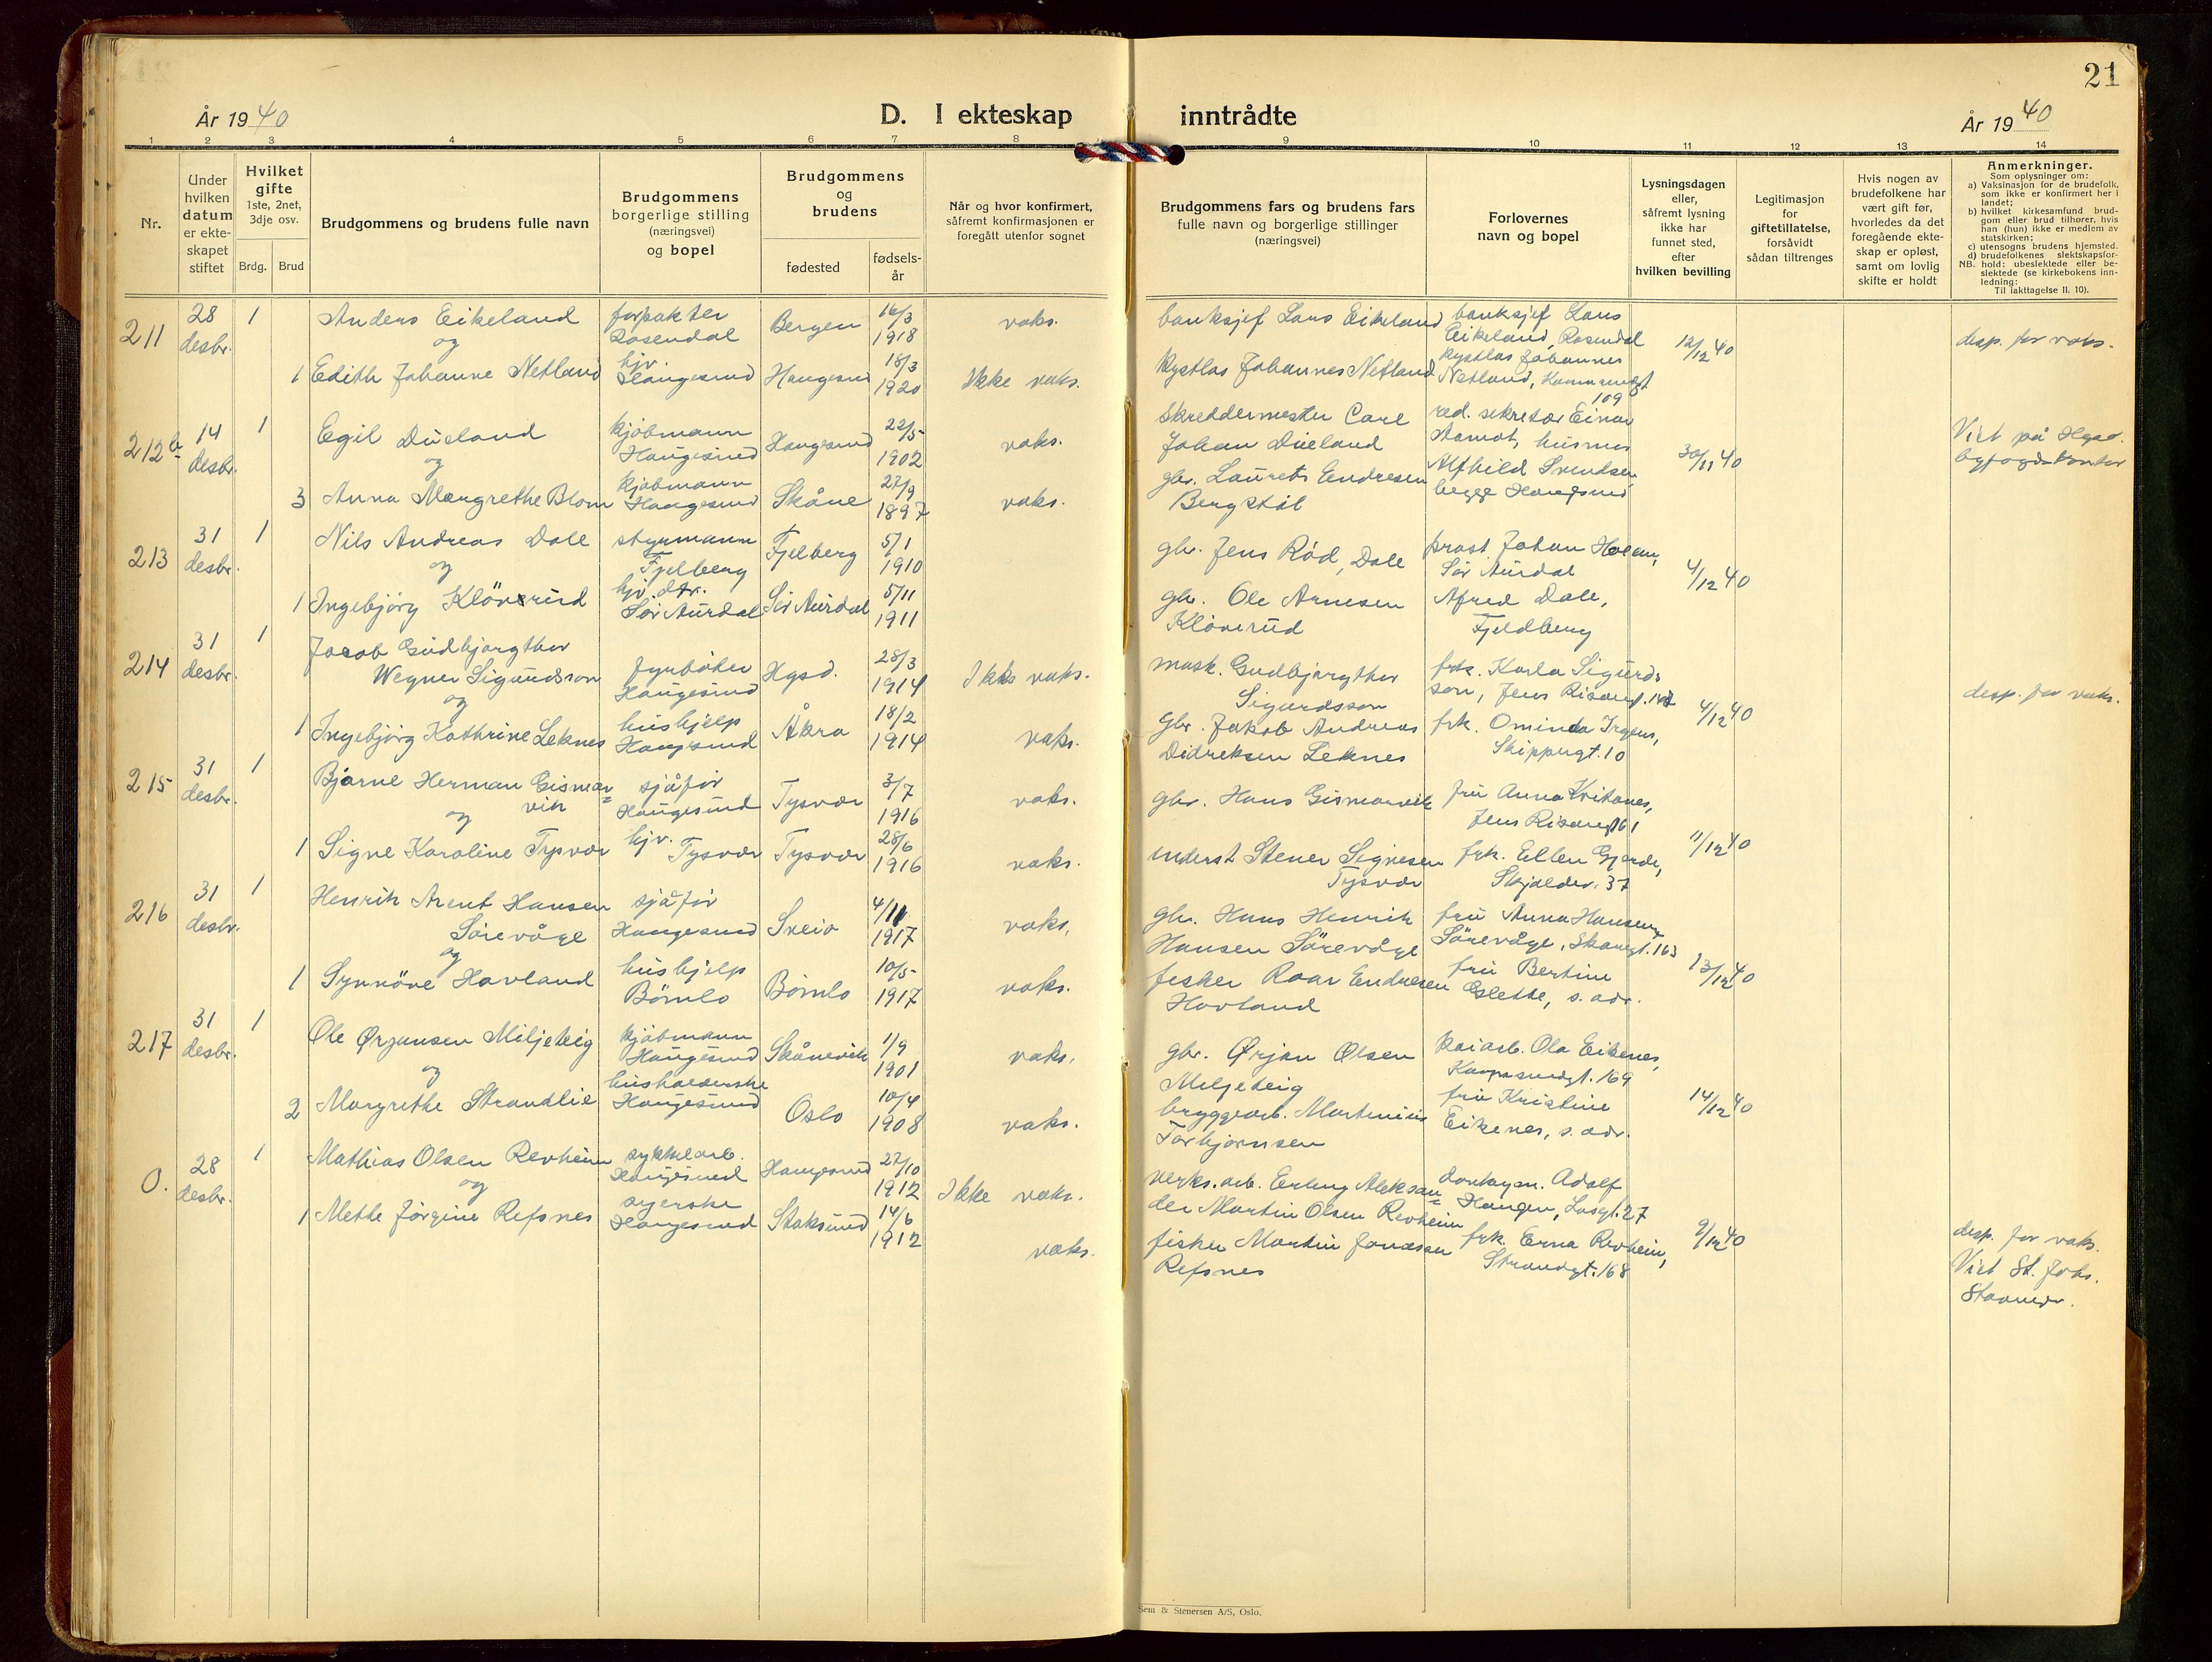 21
År 1940
D. I ekteskap inntrådte
År 1940
1 2 3 4 5 6 7 8 9 10 11 12 13 14
Nr.
Under hvilken datum er ekte-skapet stiftet
Hvilket gifte 1ste, 2net, 3dje osv.
Brdg. Brud
Brudgommens og brudens fulle navn
Brudgommens borgerlige stilling (næringsvei) og bopel
Brudgommens og brudens
fødested
fødsels-år
Når og hvor konfirmert, såfremt konfirmasjonen er foregått utenfor sognet
Brudgommens fars og brudens fars fulle navn og borgerlige stillinger (næringsvei)
Forlovernes navn og bopel
Lysningsdagen eller, såfremt lysning ikke har funnet sted, efter hvilken bevilling
Legitimasjon for giftetillatelse, forsåvidt sådan tiltrenges
Hvis nogen av brudefolkene har vært gift før, hvorledes da det foregående ekte-skap er opløst, samt om lovlig skifte er holdt
Anmerkninger.
Som oplysninger om:
a) Vaksinasjon for de brudefolk, som ikke er konfirmert her i landet;
b) hvilket kirkesamfund brud-gom eller brud tilhører, hvis han (hun) ikke er medlem av statskirken;
c) utensogns brudens hjemsted.
d) brudefolkenes slektskapsfor-hold: ubeslektede eller be-slektede (se kirkebokens inn-ledning:
NB.
Til iakttagelse II. 10).
211 28 desbr. 1 Anders Eikeland forpakter Rosendal Bergen 16/3 1918 vaks. banksjef Lars Eikeland banksjef Lars Eikeland, Rosendal 12/12 40 desp. for vaks.
og
1 Edith Johanne Netland hjv. Haugesund Haugesund 18/3 1920 Ikke vaks. kystlos Johannes Netland kystlos Johannes Netland, 109
212b 14 desbr. 1 Egil Düeland kjøbmann Haugesund Haugesund 22/5 1902 vaks. Skreddermester Carl Johan Düeland red. sekretær Einar Aamot, husmor 30/11 40 Viet på Hgsd. byfogdkontor
og
3 Anna Margrethe Blom kjøbmann Haugesund Skåne 27/9 1897 vaks. gbr. Laurets Endresen Bergstöl Alfhild Svendsen begge Haugesund
213 31 desbr. 1 Nils Andreas Dale styrmann Fjelberg Fjelberg 5/1 1910 gbr. Jens Röd, Dale prost Johan Sør Aurdal 4/12 40
og
1 Ingebjörg Klöverud hjv. dtr. Sør Aurdal Sør Aurdal 5/11 1911 gbr. Ole Arnesen Klöverud Afred Dale, Fjeldberg
214 31 desbr. 1 Jacob Gudbjørgthor Wegner Sigurdsson fyrbøter Haugesund Hgsd. 28/3 1914 Ikke vaks. mask. Gudbjørgthor Sigurdsson frk. Karla Sigurdsson, Jens Risøengt. 4/12 40 desp. for vaks.
og
1 Ingebjörg Kathrine Leknes hushjelp Haugesund Åkra 18/2 1914 vaks. Gbr. Jakob Andreas Didreksen Leknes frk. Ominda Irgens, Skippergt. 10
215 31 desbr. 1 Bjarne Herman Gismarvik sjåför Haugesund Tysvær 3/7 1916 vaks. gbr. Hans Gismarvik fru Anna Kvitanes, Jens Risøengt 61 11/12 40
og
1 Signe Karoline Tysvær hjv. Tysvær Tysvær 28/6 1916 vaks. inderst Stener Signesen Tysvær frk. Ellen Gjerde, Skjolder. 37
216 31 desbr. 1 Henrik Arent Hansen Sørevåge sjåför Haugesund Sveio 4/11 1917 vaks. gbr. Hans Henrik Hansen Sörevåge fru Anna Hansen Sörevåge, Skaregt. 163 13/12 40
og
1 Synnöve Havland hushjelp Bömlo Bömlo 10/5 1917 vaks. fisker Roar Endresen Hovland fru Bertine Eslette, s. adr.
217 31 desbr. 1 Ole Ørjansen Miljeteig kjøbmann Haugesund Skånevik 1/9 1901 vaks. gbr. Ørjan Olsen Miljeteig kaiarb. Ola Eikenes, Karmsundgt. 169 14/12 40
og
2 Margrethe Strandlie husholderske Haugesund Oslo 10/4 1908 vaks. bryggearb. Martinius Torbjørnsen fru Kristine Eikenes, s. adr.
0. 28 desbr. 1 Mathias Olsen Revheim sykkelarb. Haugesund Haugesund 27/10 1912 Ikke vaks. verks. arb. Erling Aleksander Martin Olsen Revheim Adolf Haugen, 27 9/12 40 desp. for vaks. Viet St. Johs. Stavanger.
og
1 Mette Jörgine Refsnes syerske Haugesund Stoksund 14/6 1912 vaks. fisker Martin Jonassen Refsnes frk. Erna Revheim, Strandgt. 168
Sem & Stenersen A/S, Oslo.